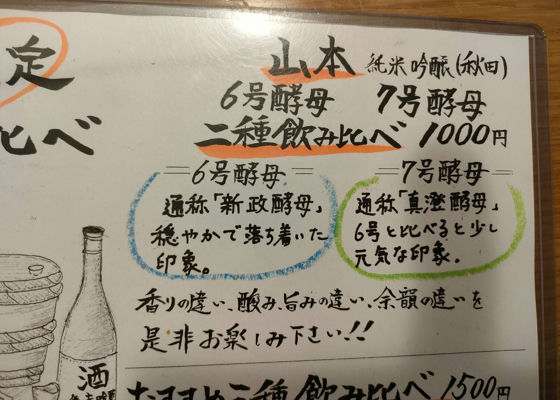 定
比べ
山本 純米吟醸(秋田)
6号酵母 7号酵母
二種飲み比べ 1000円
6号酵母
通称「新政酵母」
穏やかで落ち着いた
印象。
7号酵母
通称「真澄酵母」
6号と比べると少し
元気な印象。
香りの違い、酸み、旨みの違い、余韻の違いを
是非お楽しみ下さい!!
酒
おすすめ二種飲み比べ 1500円